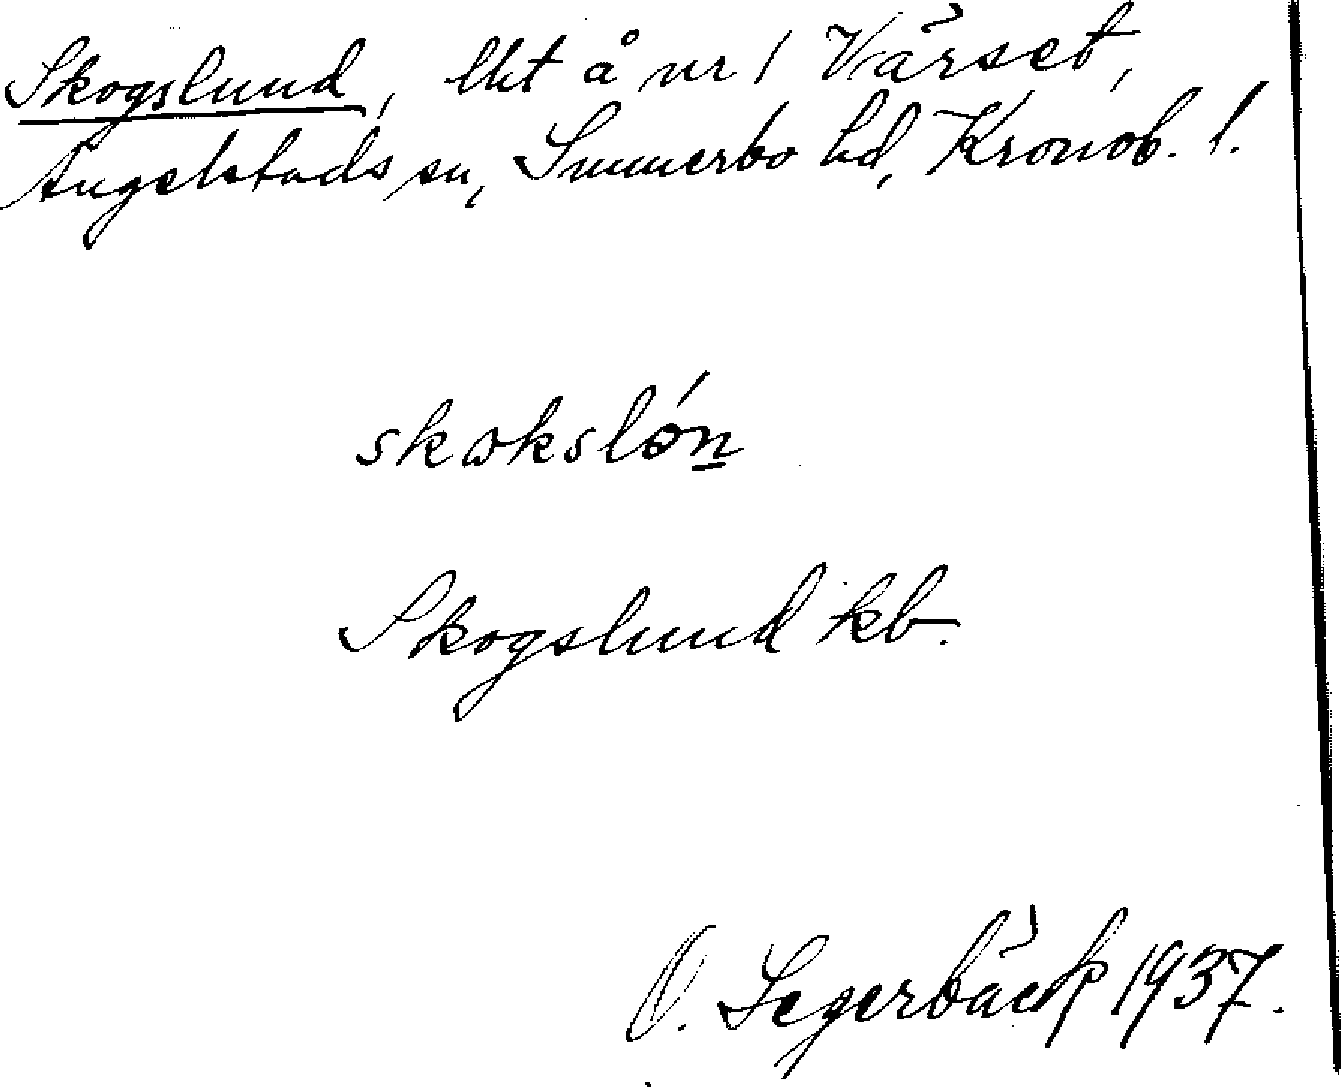 Skogslund, lht å nr 1 Värset,
Angelstads sn, Sunnerbo hd, Kronob. l.
skoksló̱n
Skogslund kb.
O. Segerbäck 1937.